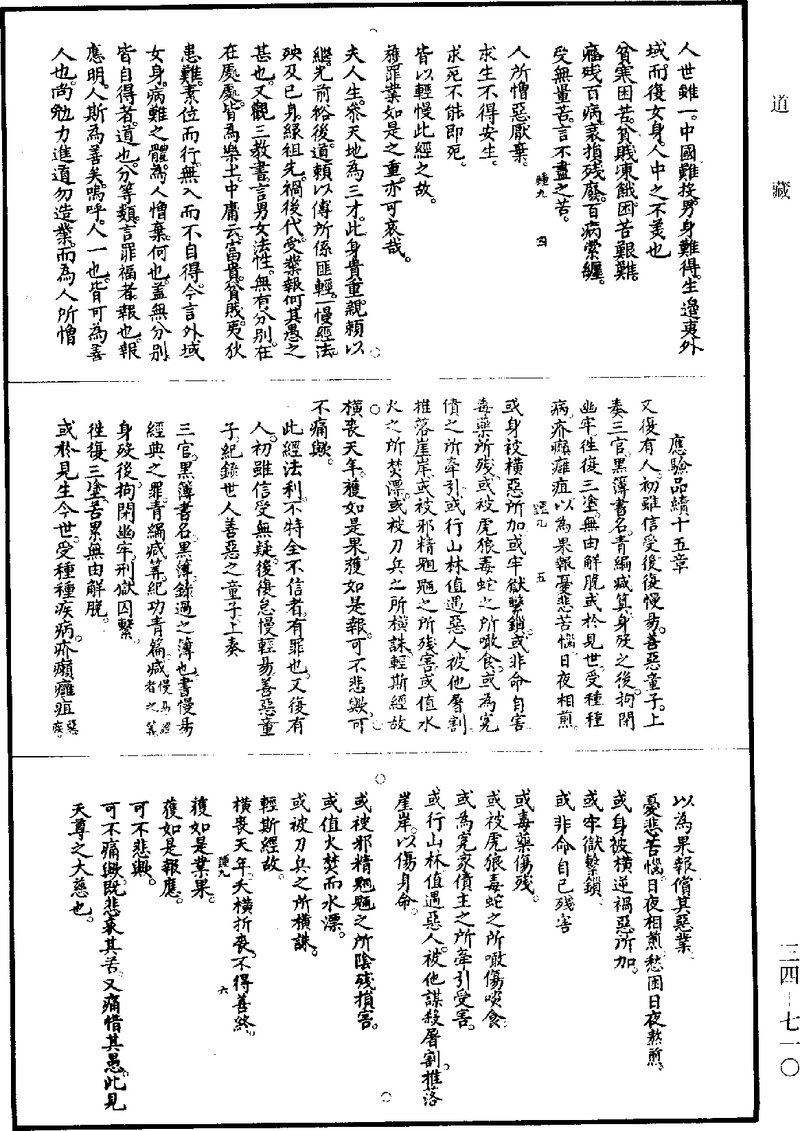 道藏
人世難一。中國難投。男身難得。生邊夷外
域而復女身。人中之不美也
貧寒困苦。貧賤凍餓。困苦艱難。
癃殘百病。衰損殘廢。百病縈纏。
受無量苦。言不盡之苦。
種九 四
人所憎惡厭棄。
求生不得安生。
求死不能即死。
皆以輕慢此經之故。
獲罪業如是之重。亦可哀哉。
夫人生參天地為三才。此身貴重。親賴以
繼先前裕後。道賴以傳所係匪輕。一慢經法
殃及已身。緣祖先禍後代。受業報何其愚之
甚也。又觀三教書。言男女法性。無有分別。在
在處處。皆為樂土。中庸云。富貴。貧賤。夷狄
患難。素位而行。無入而不自得。今言外域
女身。病難之體。為人憎棄。何也。蓋無分別
皆自得者。道也。分等類。言罪福者。報也。報
應明。人斯為善矣。嗚呼。人一也。皆可為善
人也。尚勉力進道。勿造業。而為人所憎
應驗品續十五章
又復有人。初雖信受。後復慢易。善惡童子。上
奏三官。黑簿書名。青編減算。身殁之後。拘閉
幽牢。徃復三塗。無由解脫。或於見世。受種種
病。疥癩癰疽。以為果報。憂悲苦惱。日夜相煎。
種九 五
或身被橫惡所加。或牢獄繫鎖。或非命自害
毒藥所殘。或被虎狼毒蛇之所噉食。或為寃
債之所牽引。或行山林值遇惡人。被他屠割
推落崖岸。或被邪精魍魎之所殘害。或值水
火之所焚漂。或被刀兵之所橫誅。輕斯經故
橫喪天年。獲如是果。獲如是報。可不悲歟。可
不痛歟。
此經法利。不特全不信者。有罪也。又復有
人。初雖信受無疑。後復怠慢輕易。善惡童
子。紀錄世人善惡之童子。上奏
三官。黑簿書名。黑簿。錄過之簿也。書慢易
經典之罪。青編減筭。紀功青篇。減慢易經者之筭
身殁後。拘閉幽牢。刑獄囚繫。
徃復三塗。苦累無由解脫。
或於見生今世。受種種疾病。疥癩癰疽惡疾
以為果報。償其惡業。
憂悲苦惱。日夜相煎。愁困日夜熬煎。
或身被橫逆禍惡所加。
或牢獄繫鎖。
或非命自已殘害
或毒藥傷殘。
或被虎狼毒蛇之所噉傷啖食。
或為寃家債主之所牽引受害。
或行山林值遇惡人。被他謀殺屠割。推落
崖岸。以傷身命。
或被邪精魍魎之所陰殘損害。
或值火焚而水漂。
或被刀兵之所橫誅。
輕斯經故。
橫喪天年。夭橫折喪。不得善終。
種九 六
獲如是業果。
獲如是報應。
可不悲歟。
可不痛歟。既悲哀其苦。又痛惜其愚。此見
天尊之大慈也。
三四-七一〇